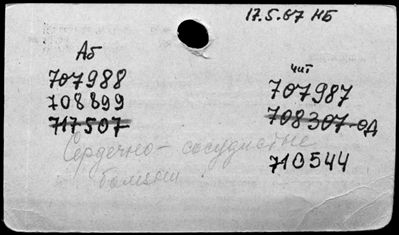 17.5.67 НБ
Аб
707988
708899
717507
чит
707987
708307 ОД
710544
Сердечно-сосудистые
болезни